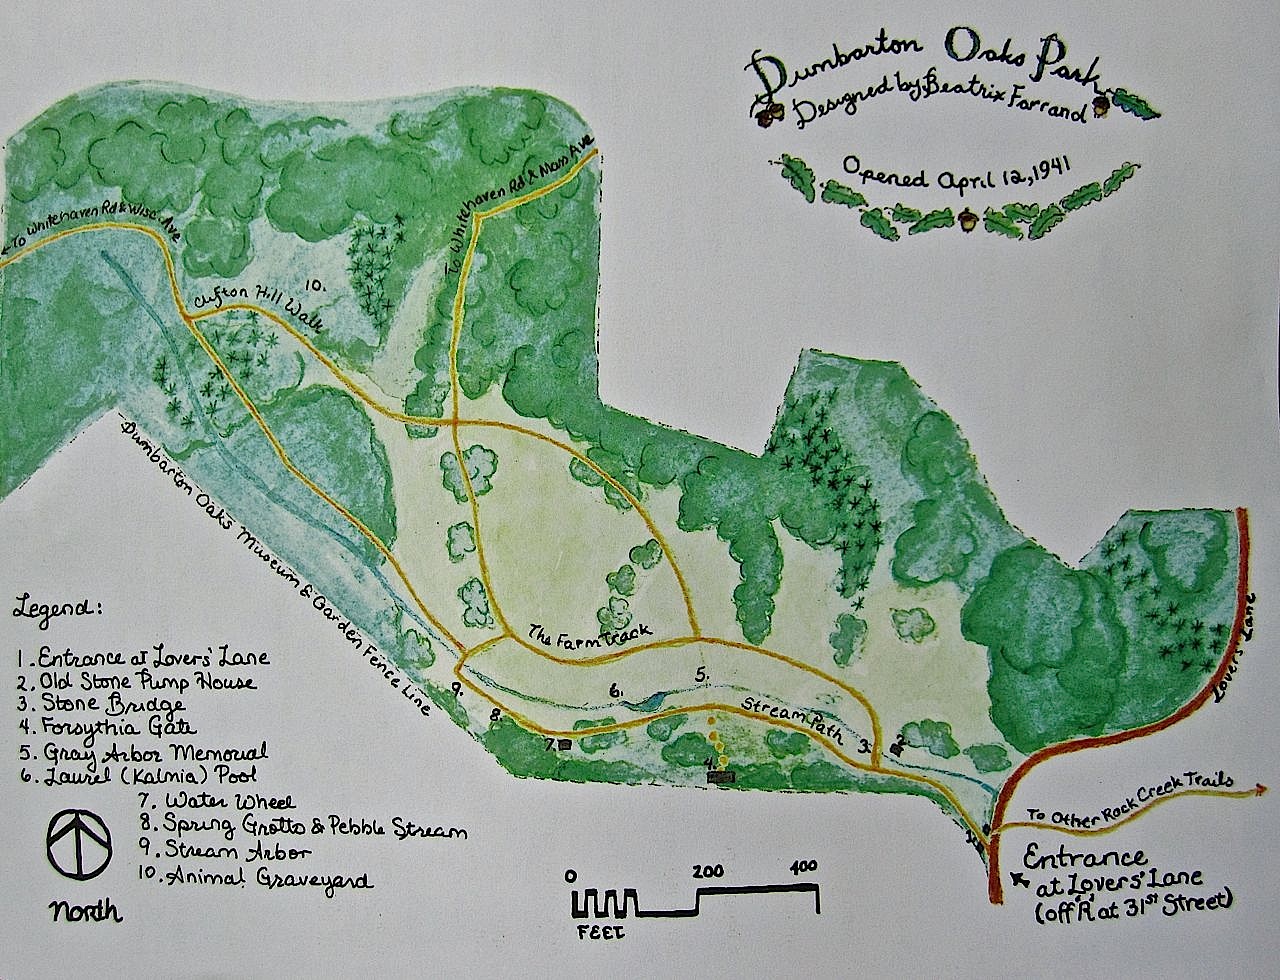 Dumbarton Oaks Park
Designed by Beatrix Farrand
Opened April 12, 1941
To Whitehaven Rd & Mass Ave
← To Whitehaven Rd & Wisc. Ave
10.
Clifton Hill Walk
Dumbarton Oaks Museum & Garden Fence Line
The Farm Track
Lovers' Lane
5.
6.
9.
8.
7.
Stream Path
4.
3.
2.
1.
To Other Rock Creek Trails
Entrance
at Lovers' Lane
(off 'R' at 31st Street)
Legend:
1. Entrance at Lovers' Lane
2. Old Stone Pump House
3. Stone Bridge
4. Forsythia Gate
5. Gray Arbor Memorial
6. Laurel (Kalmia) Pool
7. Water Wheel
8. Spring Grotto & Pebble Stream
9. Stream Arbor
10. Animal Graveyard
North
0 200 400
FEET